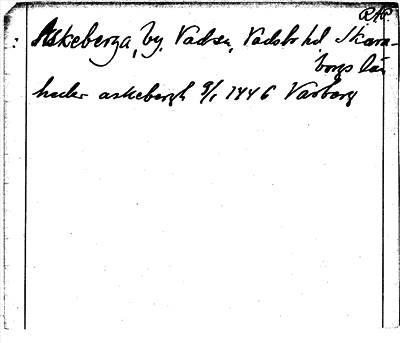 RAP
: Askeberga, by, Vadsn, Vadsbo hd Skara-
borgs län
heder askebergh 9/1 1446 Varberg